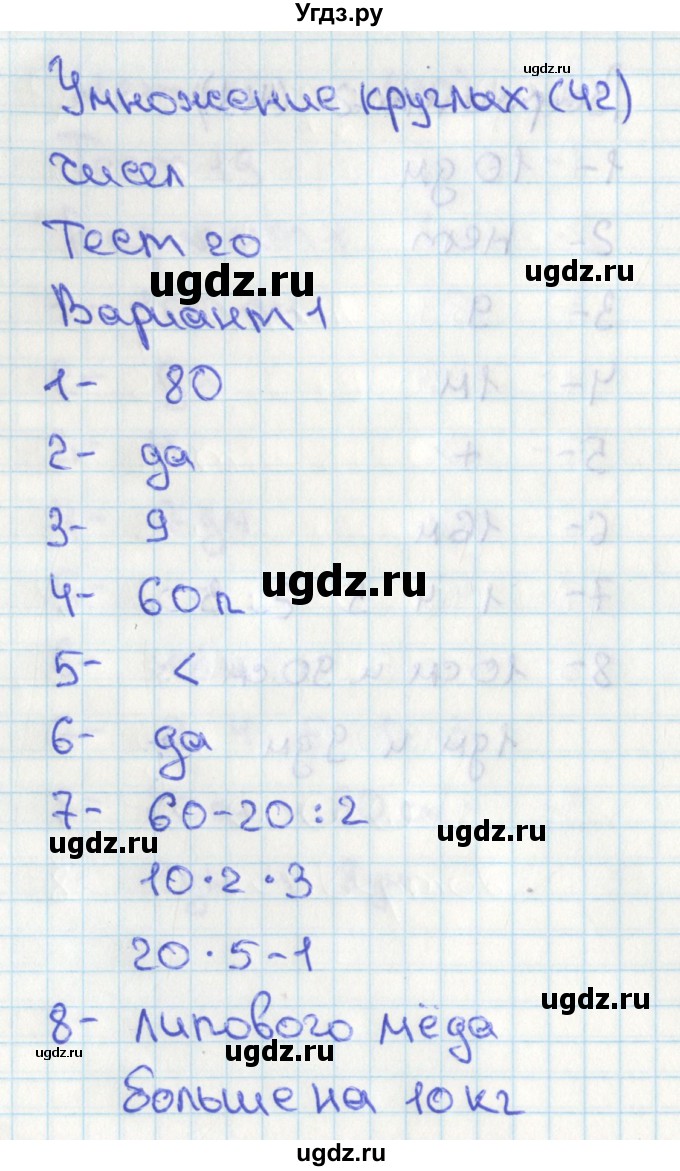 Угдз.ру
Умножение круглых (42)
чисел
Тест 20
Вариант 1
1- 80
2- да
3- 9
4- 60 л
5- <
6- да
7- 60-20:2
10·2·3
20·5-1
8- липового мёда
больше на 10 кг
ugdz.ru
ugdz.ru
ugdz.ru
ugdz.ru
ugdz.ru
ugdz.ru
ugdz.ru
ugdz.ru
ugdz.ru
ugdz.ru